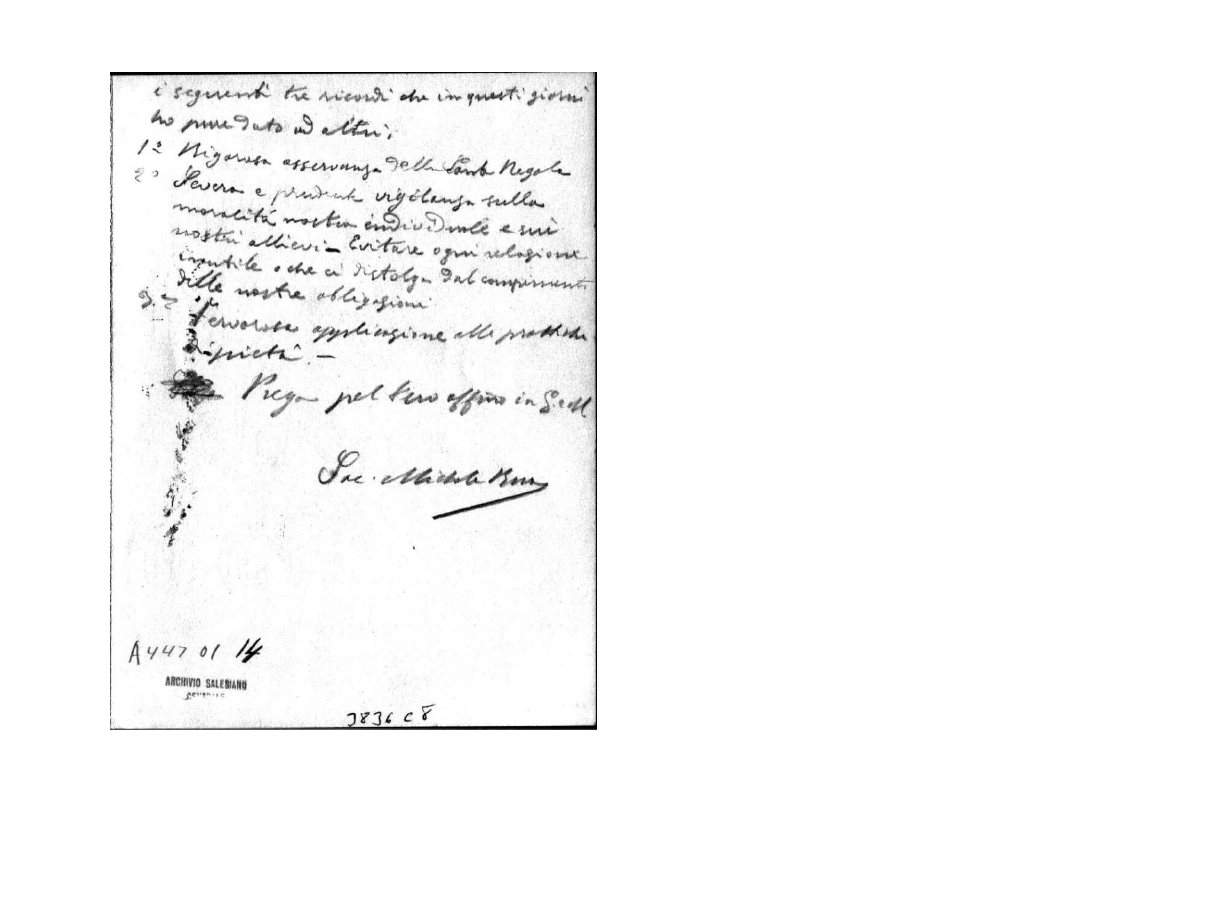 i seguenti tre ricordi che in questi giorni
ho pure dato ad altri:
1º Rigorosa osservanza della Santa Regola
2º Severa e prudente vigilanza sulla
moralità nostra individuale e sui
nostri allievi – Evitare ogni relazione
inutile o che ci distolga dal compimento
delle nostre obbligazioni
3º Fervorosa applicazione alle pratiche
di pietà. –
Prega pel tuo affmo in G. e M.
Sac. Michele Rua
A 447 01 14
ARCHIVIO SALESIANO
CENTRALE
3836 C 8